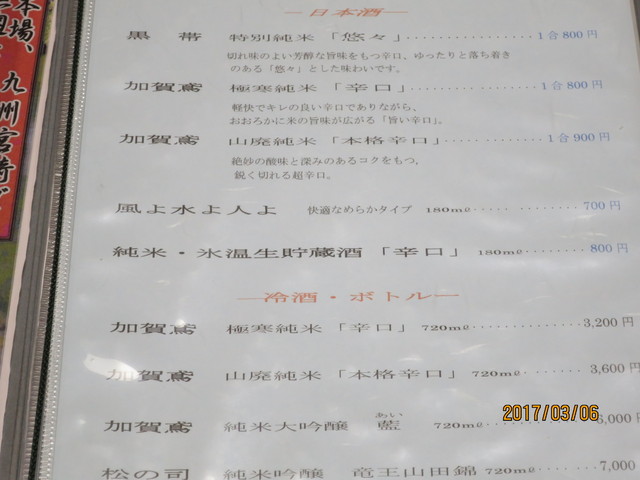 本場、
九州宮崎
― 日本酒 ―
黒 帯　特別純米「悠々」……………… 1合 800円
切れ味のよい芳醇な旨味をもつ辛口、ゆったりと落ち着き
のある「悠々」とした味わいです。
加賀鳶　極寒純米「辛口」……………… 1合 800円
軽快でキレの良い辛口でありながら、
おおらかに米の旨味が広がる「旨い辛口」。
加賀鳶　山廃純米「本格辛口」………… 1合 900円
絶妙の酸味と深みのあるコクをもつ,
鋭く切れる超辛口。
風よ水よ人よ　快適なめらかタイプ　180mℓ…… ……… 700円
純米・氷温生貯蔵酒「辛口」　180mℓ……… 800円
―冷酒・ボトル―
加賀鳶　極寒純米「辛口」 720mℓ……………… 3,200円
加賀鳶　山廃純米「本格辛口」 720mℓ……………… 3,600円
あい
加賀鳶　純米大吟醸　藍　720mℓ……… ,000円
松の司　純米吟醸　竜王山田錦 720mℓ……… 7,000
2017/03/06